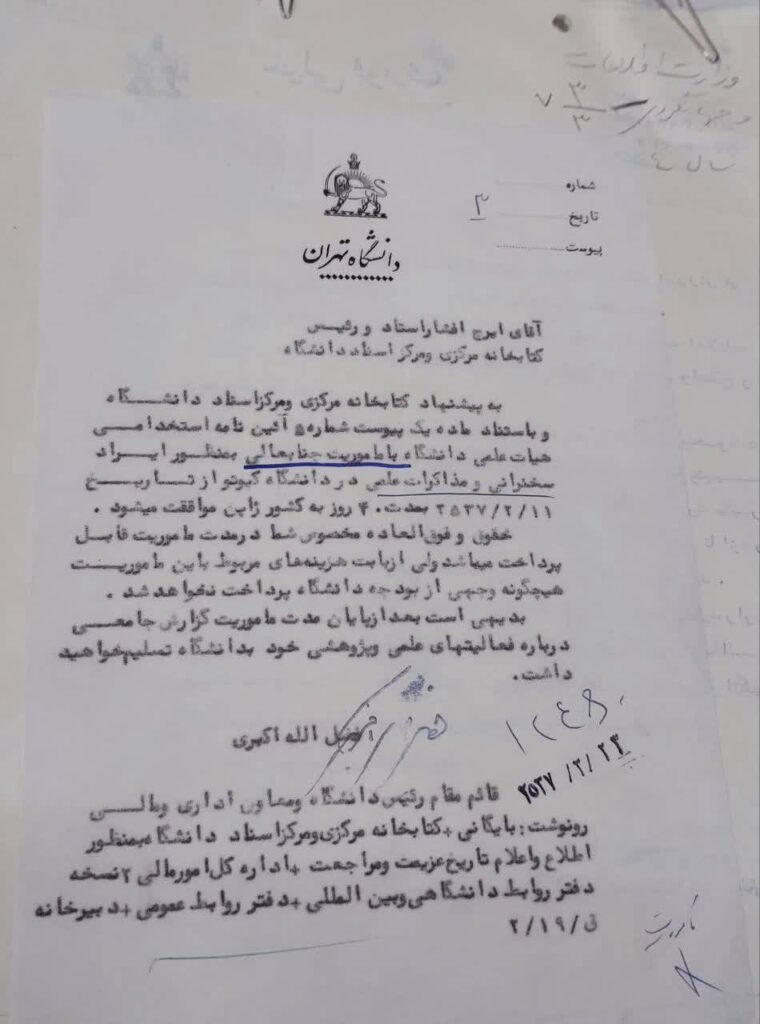 وزارت اطلاعات
شماره
تاریخ
۳
پیوست
دانشگاه تهران
آقای ایرج افشار استاد و رئیس
کتابخانه مرکزی و مرکز اسناد دانشگاه
به پیشنهاد کتابخانه مرکزی و مرکز اسناد دانشگاه
و باستناد ماده یک پیوست شماره ۵ آئین نامه استخدامی
هیات علمی دانشگاه با ماموریت جنابعالی بمنظور ایراد
سخنرانی و مذاکرات علمی در دانشگاه کیوتو از تاریخ
۲۵۳۷/۲/۱۱ بمدت ۴۰ روز به کشور ژاپن موافقت میشود .
حقوق و فوق‌العاده مخصوص شما در مدت ماموریت قابل
پرداخت میباشد ولی از بابت هزینه‌های مربوط باین ماموریت
هیچگونه وجهی از بودجه دانشگاه پرداخت نخواهد شد .
بدیهی است بعد از پایان مدت ماموریت گزارش جامعی
درباره فعالیتهای علمی و پژوهشی خود بدانشگاه تسلیم خواهید
داشت.
فضل الله اکبری
۲۵۳۷/۲/۲۳
قائم مقام رئیس دانشگاه و معاون اداری و مالی
رونوشت : بایگانی + کتابخانه مرکزی و مرکز اسناد دانشگاه بمنظور
اطلاع و اعلام تاریخ عزیمت و مراجعت + اداره کل امور مالی ۲ نسخه
دفتر روابط دانشگاهی و بین المللی + دفتر روابط عمومی + دبیرخانه
ق / ۲/۱۹